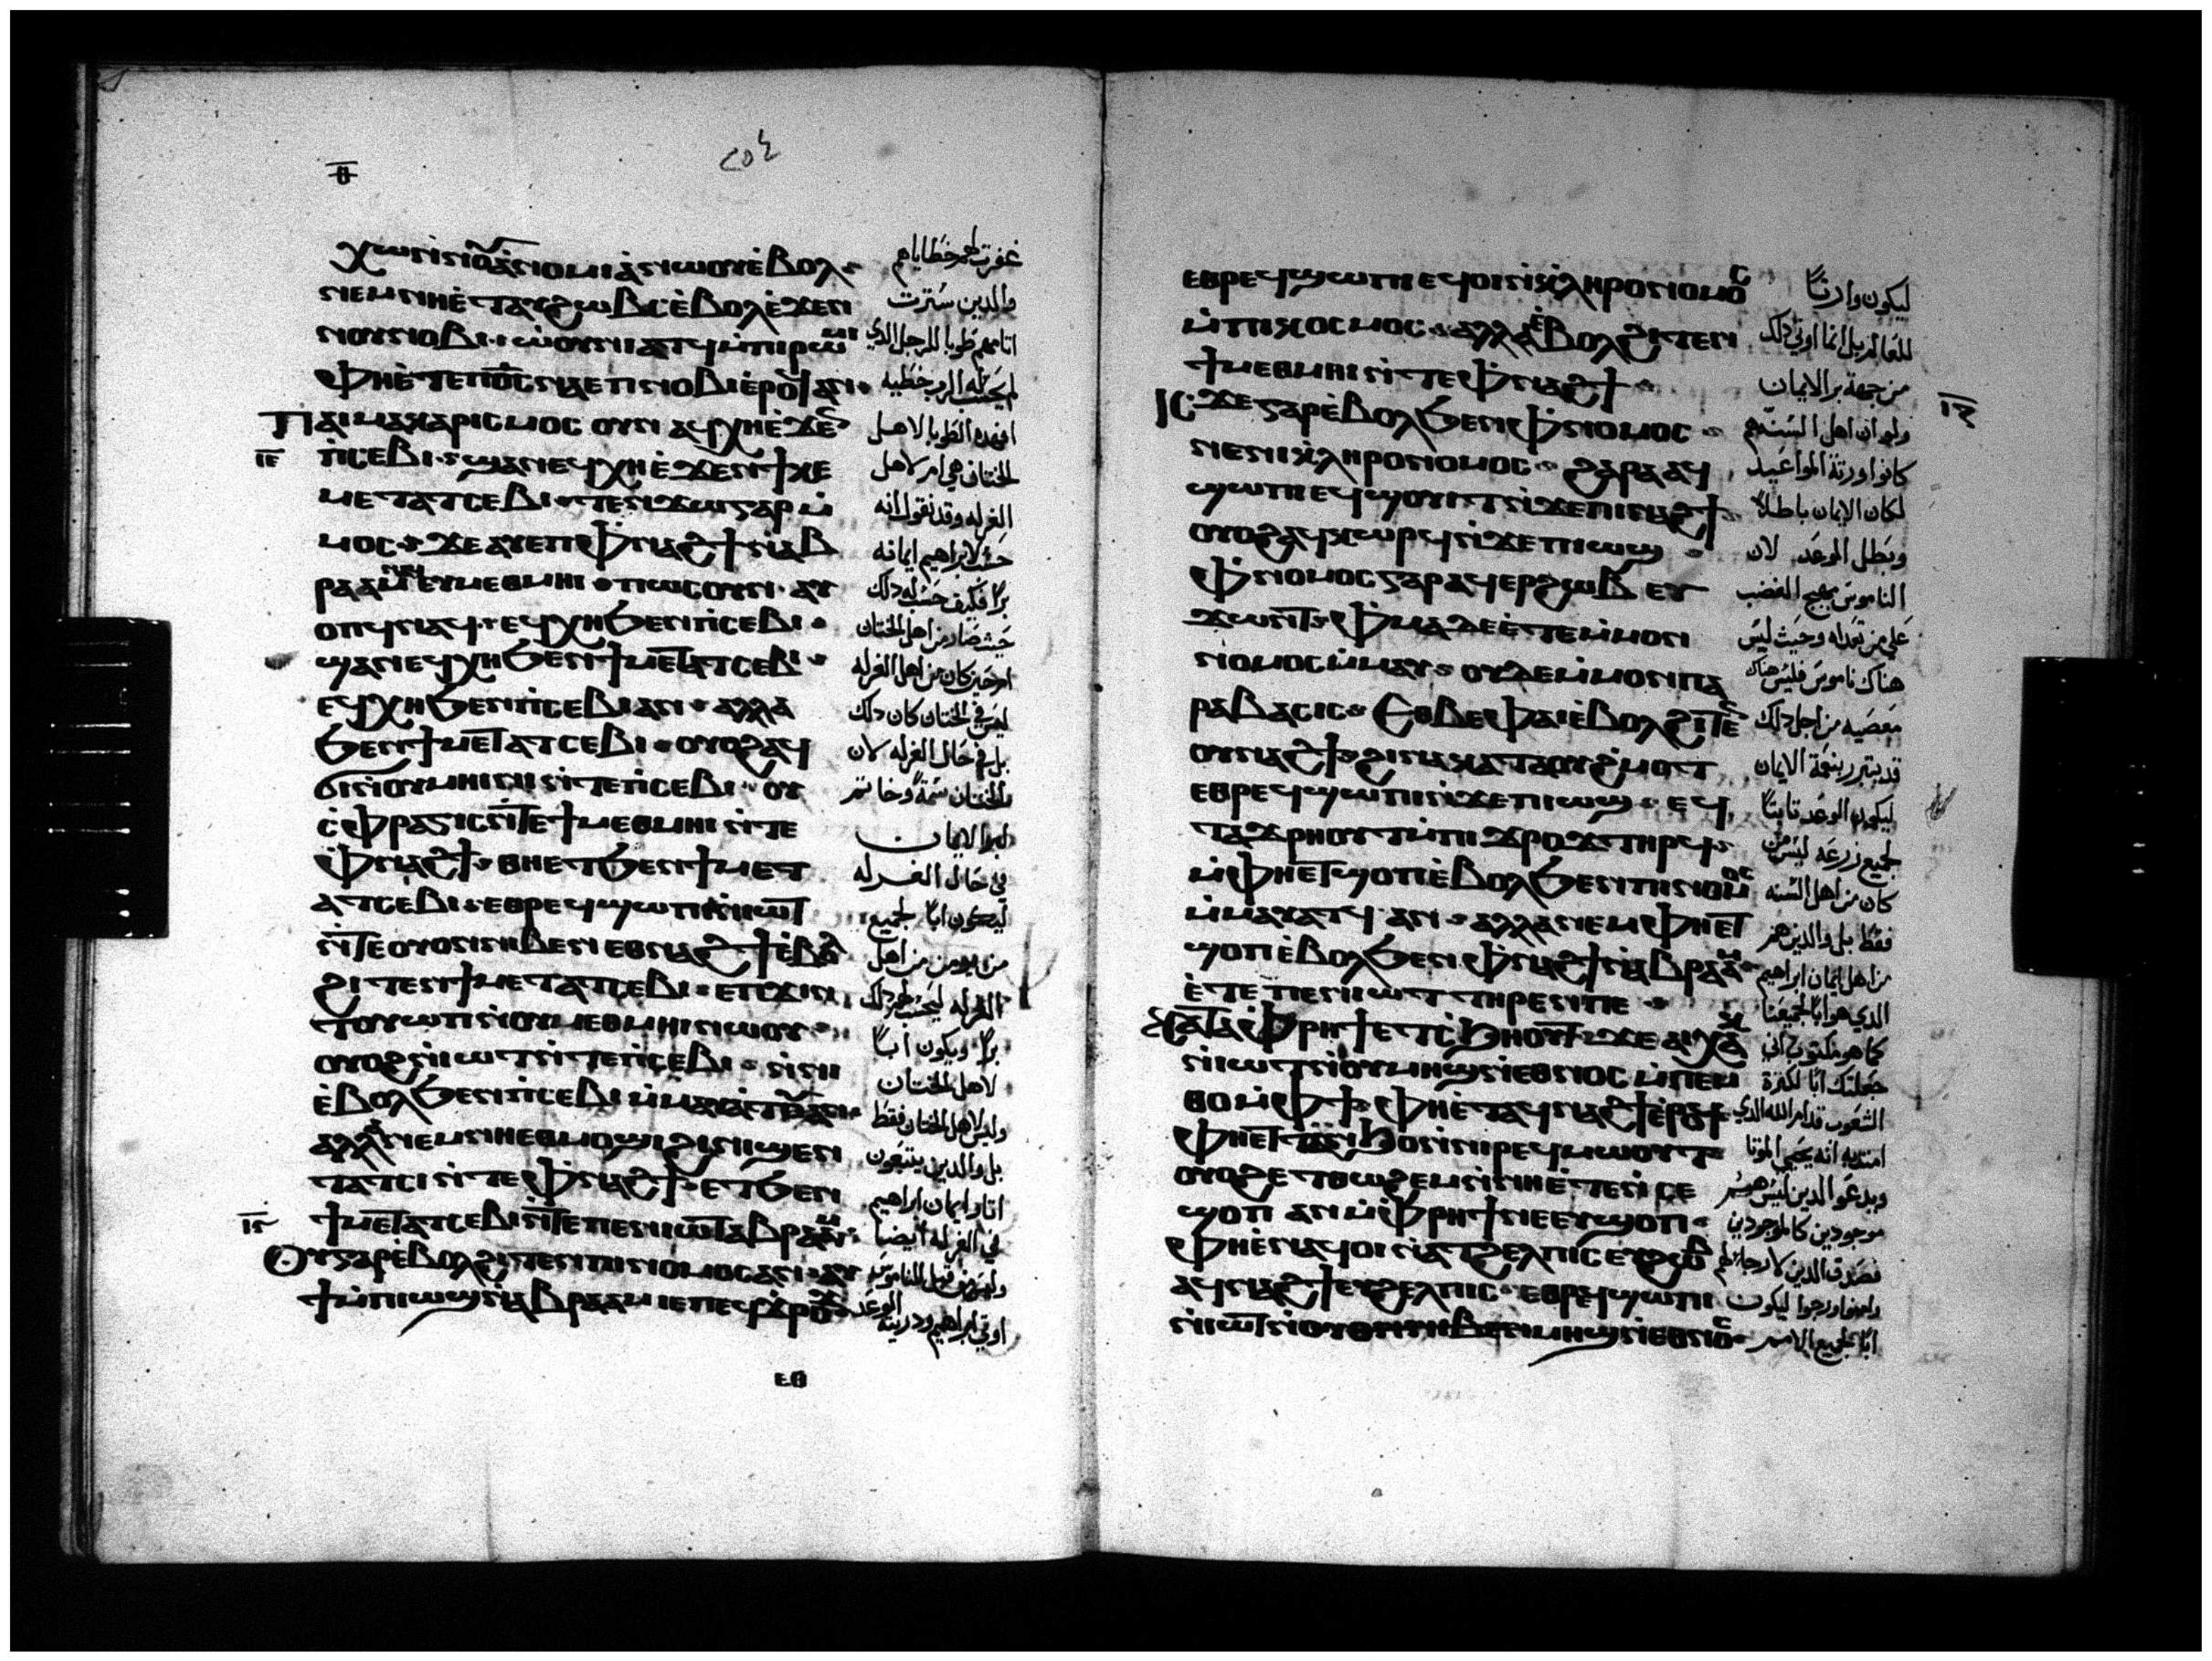 ⲑ
ⲭⲱ ⲛⲛⲟⲩⲁⲛⲟⲙⲓⲁ ⲛⲱⲟⲩ ⲉⲃⲟⲗ
ⲛⲉⲙ ⲛⲏ ⲉⲧⲁⲩϩⲱⲃⲥ ⲉⲃⲟⲗ ⲉϫⲉⲛ
ⲛⲟⲩⲛⲟⲃⲓ ⲱⲟⲩⲛⲓⲁⲧϥ ⲙⲡⲓⲣⲱⲙⲓ
ⲫⲏ ⲉⲧⲉ ⲡⲟⲥ ⲛⲁⲉⲡ ⲛⲟⲃⲓ ⲉⲣⲟϥ ⲁⲛ
ⲡⲁⲓⲙⲁⲕⲁⲣⲓⲥⲙⲟⲥ ⲟⲩⲛ ⲁϥⲭⲏ ⲉϫⲉⲛ
ⲓⲉ
ⲡⲥⲉⲃⲓ ϣⲁⲛ ⲉϥⲭⲏ ⲉϫⲉⲛ ϯⲕⲉ
ⲙⲉⲧⲁⲧⲥⲉⲃⲓ ⲧⲉⲛϫⲱ ⲅⲁⲣ ⲙ
ⲙⲟⲥ ϫⲉ ⲁⲩⲉⲡ ⲫⲛⲁϩϯ ⲛⲁⲃ
ⲣⲁⲁⲙ ⲛⲁϥ ⲉⲩⲙⲉⲑⲙⲏⲓ ⲡⲱⲥ ⲟⲩⲛ ⲁⲩ
ⲟⲡϥ ⲛⲁϥ ⲉϥⲭⲏ ϧⲉⲛ ⲡⲥⲉⲃⲓ
ϣⲁⲛ ⲉϥⲭⲏ ϧⲉⲛ ϯⲙⲉⲧⲁⲧⲥⲉⲃⲓ
ⲉϥⲭⲏ ϧⲉⲛ ⲡⲥⲉⲃⲓ ⲁⲛ ⲁⲗⲗⲁ
ϧⲉⲛ ϯⲙⲉⲧⲁⲧⲥⲉⲃⲓ ⲟⲩⲟϩ ⲁϥ
ϭⲓ ⲛⲟⲩⲙⲏⲓⲛⲓ ⲛⲧⲉ ⲡⲥⲉⲃⲓ ⲟⲩ
ⲥⲫⲣⲁⲅⲓⲥ ⲛⲧⲉ ϯⲙⲉⲑⲙⲏⲓ ⲛⲧⲉ
ⲫⲛⲁϩϯ ⲑⲏ ⲉⲧϧⲉⲛ ϯⲙⲉⲧ
ⲁⲧⲥⲉⲃⲓ ⲉⲑⲣⲉϥϣⲱⲡⲓ ⲛⲓⲱⲧ
ⲛⲧⲉ ⲟⲩⲟⲛ ⲛⲓⲃⲉⲛ ⲉⲑⲛⲁϩϯ ⲉⲃⲟⲗ
ϩⲓⲧⲉⲛ ϯⲙⲉⲧⲁⲧⲥⲉⲃⲓ ⲉⲡϫⲓⲛ
ⲧⲟⲩⲱⲡ ⲛⲟⲩⲙⲉⲑⲙⲏⲓ ⲛⲱⲟⲩ
ⲟⲩⲟϩ ⲛⲓⲱⲧ ⲛⲧⲉ ⲡⲥⲉⲃⲓ ⲛⲛⲏ
ⲉⲃⲟⲗ ϧⲉⲛ ⲡⲥⲉⲃⲓ ⲙⲙⲁⲩⲁⲧⲟⲩ ⲁⲛ
ⲁⲗⲗⲁ ⲛⲉⲙ ⲛⲏ ⲉⲑⲙⲟϣⲓ ϩⲓ ⲛⲓϣⲉⲛ
ⲧⲁⲧⲥⲓ ⲛⲧⲉ ⲫⲛⲁϩϯ ⲉⲧϧⲉⲛ
ⲓⲋ
ϯⲙⲉⲧⲁⲧⲥⲉⲃⲓ ⲛⲧⲉ ⲡⲉⲛⲓⲱⲧ ⲁⲃⲣⲁⲁⲙ
ⲟⲩ ⲅⲁⲣ ⲉⲃⲟⲗ ϩⲓⲧⲉⲛ ⲡⲓⲛⲟⲙⲟⲥ ⲁⲛ ⲁⲩ
ϯ ⲙⲡⲓⲱϣ ⲛⲁⲃⲣⲁⲁⲙ ⲓⲉ ⲡⲉϥϫⲣⲟϫ
غفرت لهم خطاياهم
والدين سترت
اثامهم طوبا للرجل الدي
لم يحسب له الرب خطيه
افهده الطوبا لاهل
الختان هي ام لاهل
الغرله وقد نقول انه
حسب لابراهيم ايمانه
برا فكيف حسب له دلك
حيث صار من اهل الختان
ام حين كان من اهل الغرله
ليس في الختان كان دلك
بل في حال الغرله لان
الختان سمة وخاتم
لبر الايمان
في حال الغرله
ليكون ابا لجميع
من يومن من اهل
الغرله ليحسب لهم دلك
برا ويكون ابا
لاهل الختان
وليس لاهل الختان فقط
بل والدين يتبعون
اثار ايمان ابراهيم
في الغرله ايضا
وليس من قبل الناموس
الوعد
اوتي ابراهيم ودريته
ⲉⲑⲣⲉϥϣⲱⲡⲓ ⲉϥⲟⲓ ⲛⲕⲗⲏⲣⲟⲛⲟⲙⲟⲥ
ⲙⲡⲓⲕⲟⲥⲙⲟⲥ ⲁⲗⲗⲁ ⲉⲃⲟⲗ ϩⲓⲧⲉⲛ
ϯⲙⲉⲑⲙⲏⲓ ⲛⲧⲉ ⲫⲛⲁϩϯ
ⲓⲥϫⲉ ⲅⲁⲣ ⲉⲃⲟⲗ ϧⲉⲛ ⲫⲛⲟⲙⲟⲥ
ⲛⲉ ⲛⲓⲕⲗⲏⲣⲟⲛⲟⲙⲟⲥ ϩⲁⲣⲁ ⲁϥ
ϣⲱⲡⲓ ⲉϥϣⲟⲩⲓⲧ ⲛϫⲉ ⲡⲓⲛⲁϩϯ
ⲟⲩⲟϩ ⲁϥⲕⲱⲣϥ ⲛϫⲉ ⲡⲓⲱϣ
ⲫⲛⲟⲙⲟⲥ ⲅⲁⲣ ⲁϥⲉⲣϩⲱⲃ ⲉⲩ
ϫⲱⲛⲧ ⲫⲙⲁ ⲇⲉ ⲉⲧⲉ ⲙⲙⲟⲛ
ⲛⲟⲙⲟⲥ ⲙⲙⲁⲩ ⲟⲩⲇⲉ ⲙⲙⲟⲛ ⲡⲁ
ⲣⲁⲃⲁⲥⲓⲥ ⲉⲑⲃⲉ ⲫⲁⲓ ⲉⲃⲟⲗ ϩⲓⲧⲉⲛ
ⲟⲩⲛⲁϩϯ ϩⲓⲛⲁ ⲕⲁⲧⲁ ⲟⲩϩⲙⲟⲧ
ⲉⲑⲣⲉϥϣⲱⲡⲓ ⲛϫⲉ ⲡⲓⲱϣ ⲉϥ
ⲧⲁϫⲣⲏⲟⲩⲧ ⲙⲡⲓϫⲣⲟϫ ⲧⲏⲣϥ
ⲙⲫⲏ ⲉⲧϣⲟⲡ ⲉⲃⲟⲗ ϧⲉⲛ ⲡⲓⲛⲟⲙⲟⲥ
ⲙⲙⲁⲩⲁⲧϥ ⲁⲛ ⲁⲗⲗⲁ ⲛⲉⲙ ⲫⲏ ⲉⲧ
ϣⲟⲡ ⲉⲃⲟⲗ ϧⲉⲛ ⲫⲛⲁϩϯ ⲛⲁⲃⲣⲁⲁⲙ
ⲉⲧⲉ ⲡⲉⲛⲓⲱⲧ ⲧⲏⲣⲉⲛ ⲡⲉ
ⲕⲁⲧⲁ ⲫⲣⲏϯ ⲉⲧⲥϧⲏⲟⲩⲧ ϫⲉ ⲁⲓⲭⲁⲕ
ⲛⲓⲱⲧ ⲛⲟⲩⲙⲏϣ ⲛⲉⲑⲛⲟⲥ ⲙⲡⲉⲙ
ⲑⲟ ⲙⲫϯ ⲫⲏ ⲉⲧⲁϥⲛⲁϩϯ ⲉⲣⲟϥ
ⲫⲏ ⲉⲧⲧⲁⲛϧⲟ ⲛⲛⲓⲣⲉϥⲙⲱⲟⲩⲧ
ⲟⲩⲟϩ ⲉⲧⲑⲱϩⲉⲙ ⲛⲛⲏ ⲉⲧⲉ ⲛⲥⲉ
ϣⲟⲡ ⲁⲛ ⲙⲫⲣⲏϯ ⲛⲉⲩϣⲟⲡ
ⲫⲏ ⲉⲛⲁϥⲟⲓ ⲛⲁⲧϩⲉⲗⲡⲓⲥ ⲉⲩϩⲱⲃ
ⲁϥⲛⲁϩϯ ⲉⲩϩⲉⲗⲡⲓⲥ ⲉⲑⲣⲉϥϣⲱⲡⲓ
ⲛⲓⲱⲧ ⲙⲏϣ ⲛⲉⲑⲛⲟⲥ
ليكون وارثا
للعالم بل انما اوتي دلك
من جهة بر الايمان
ولو ان اهل السنة هم
كانوا ورثة المواعيد
لكان الايمان باطلا
وبطل الوعد لان
الناموس يهيج الغضب
علي من تعداه وحيث ليس
هناك ناموس فليس هناك
معصيه من اجل دلك
قد يتبرر بنعمة الايمان
ليكون الوعد ثابتا
لجميع زرعه ليس من
كان من اهل السنه
فقط بل والدين هم
من اهل ايمان ابراهيم
الدي هو ابا لجميعنا
كما هو مكتوب اني
جعلتك ابا لكثرة
الشعوب قدام الله الدي
امنت به انه يحيي الموتا
ويدعو الدين ليس هم
موجودين كالموجودين
فصدق الدين لا رجا لهم
وامنوا ورجوا ليكون
ابا لجميع الامم